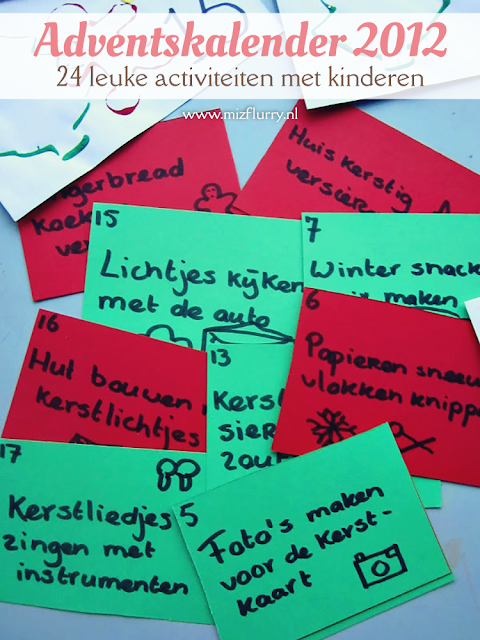 Adventskalender 2012
24 leuke activiteiten met kinderen
www.mizflurry.nl
gerbread
koek
ver
Huis kerstig
versier
15
Lichtjes kijken
met de auto
7
Winter snack
maken
6
Papieren sneeuw
vlokken knippe
16
Hut bouwen
kerstlichtjes
13
Kerst
sier
zou
17
Kerstliedjes
zingen met
instrumenten
5
Foto's maken
voor de kerst-
kaart